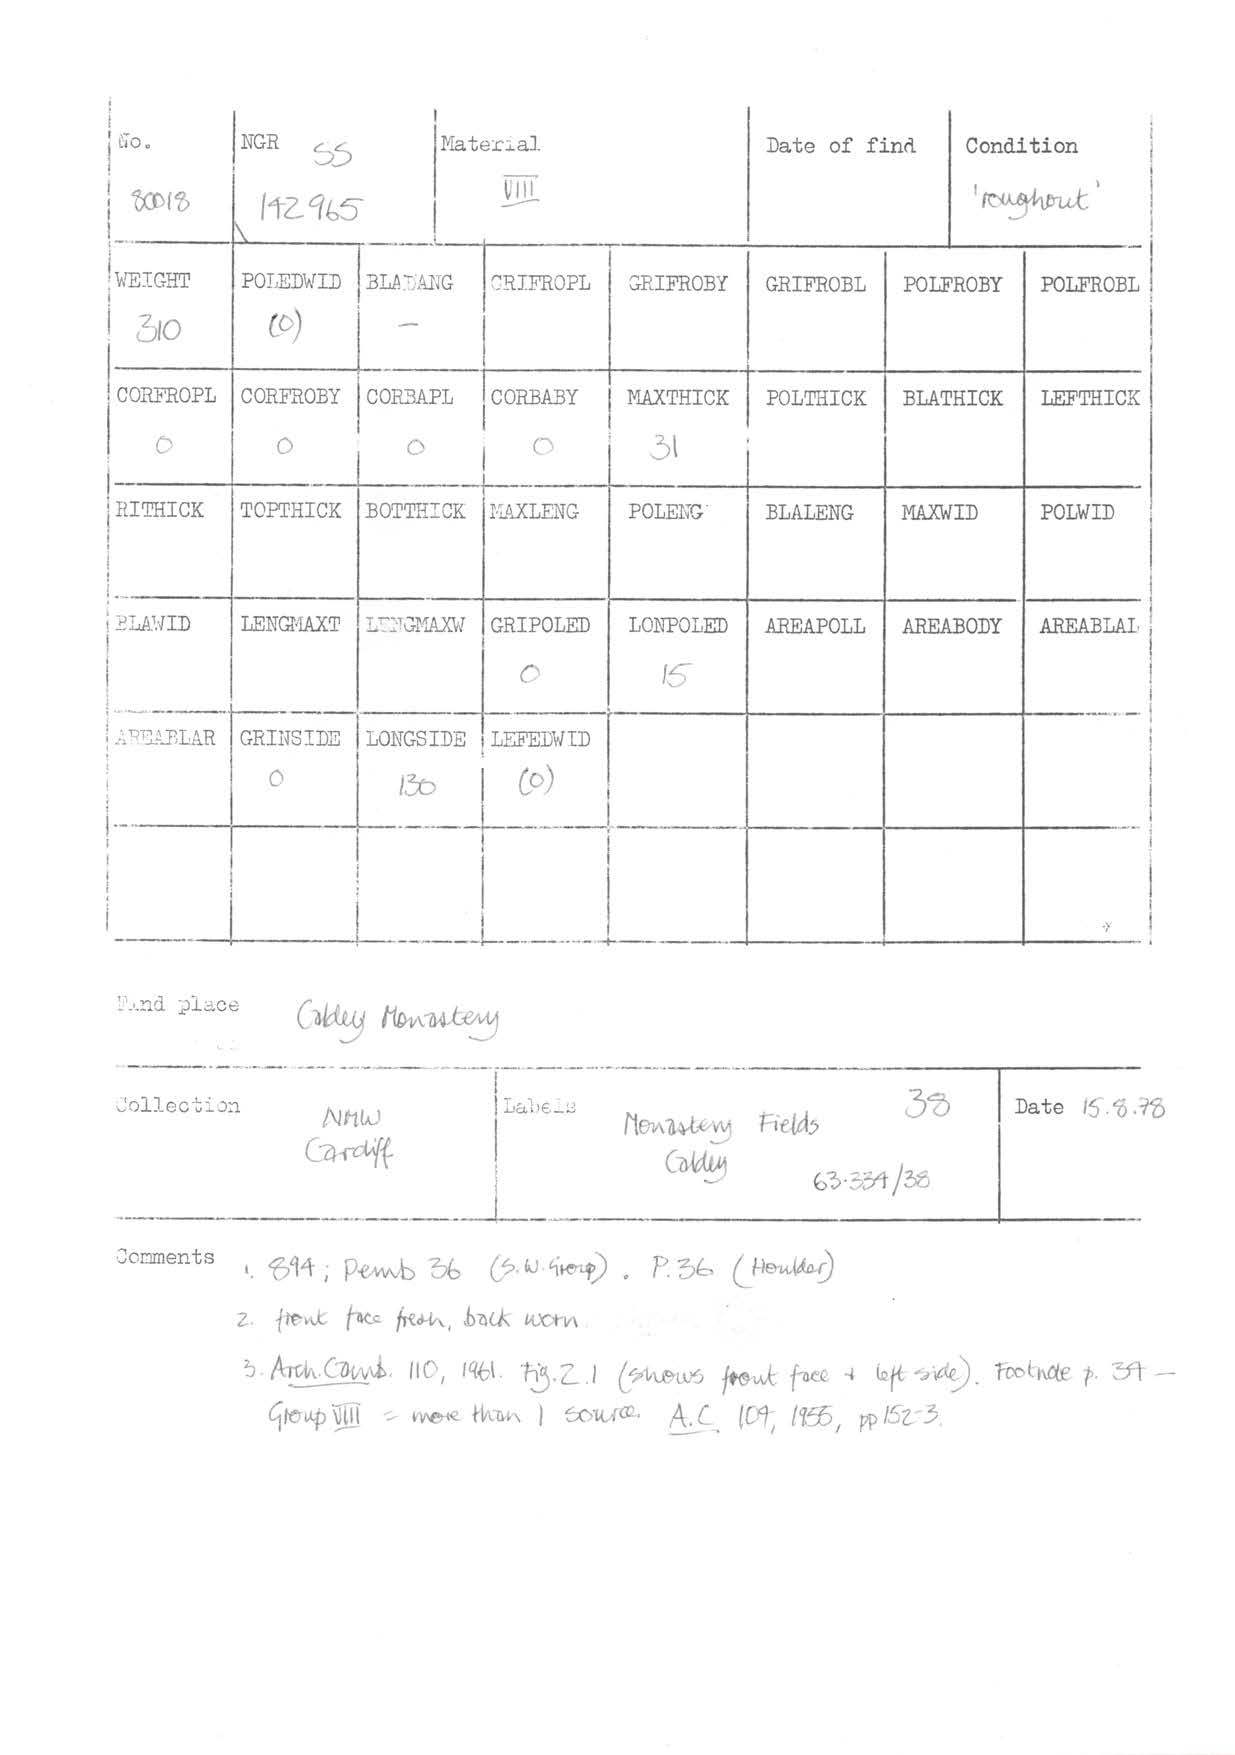 No. NGR SS Material Date of find Condition
80018 142965 VIII 'roughout'
WEIGHT POLEDWID BLADANG GRIFROPL GRIFROBY GRIFROBL POLFROBY POLFROBL
310 (0) —
CORFROPL CORFROBY CORBAPL CORBABY MAXTHICK POLTHICK BLATHICK LEFTHICK
0 0 0 0 31
RITHICK TOPTHICK BOTTHICK MAXLENG POLENG BLALENG MAXWID POLWID
BLAWID LENGMAXT LENGMAXW GRIPOLED LONPOLED AREAPOLL AREABODY AREABLAL
0 15
AREABLAR GRINSIDE LONGSIDE LEFEDWID
0 130 (0)
Find place Caldey Monastery
Collection NMW Cardiff
Labels 38
Monastery Fields
Caldey
63.334/38
Date 15.8.78
Comments 1. 894; Pemb 36 (S.W. Group). P.36 (Houlder)
2. front face fresh, back worn
3. Arch. Camb. 110, 1961. Fig. 2.1 (shows front face + left side). Footnote p. 34 —
Group VIII = more than 1 source. A.C. 104, 1955, pp 152-3.